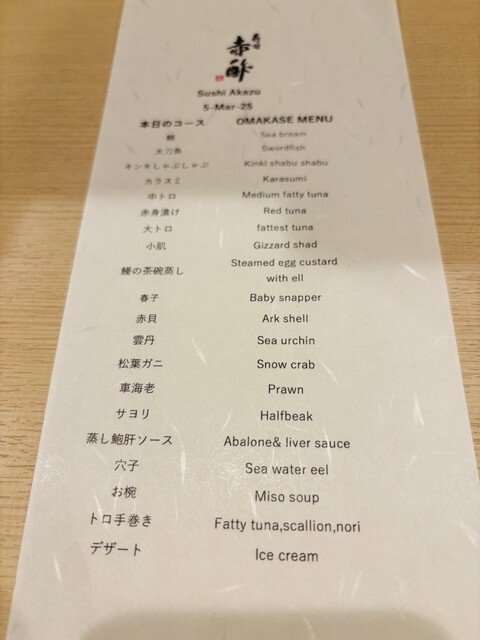 寿司
赤酢
Sushi Akazu
5-Mar-25
本日のコース OMAKASE MENU
鯛 Sea bream
太刀魚 Swordfish
キンキしゃぶしゃぶ Kinki shabu shabu
カラスミ Karasumi
中トロ Medium fatty tuna
赤身漬け Red tuna
大トロ fattest tuna
小肌 Gizzard shad
鰻の茶碗蒸し Steamed egg custard
with ell
春子 Baby snapper
赤貝 Ark shell
雲丹 Sea urchin
松葉ガニ Snow crab
車海老 Prawn
サヨリ Halfbeak
蒸し鮑肝ソース Abalone& liver sauce
穴子 Sea water eel
お椀 Miso soup
トロ手巻き Fatty tuna,scallion,nori
デザート Ice cream